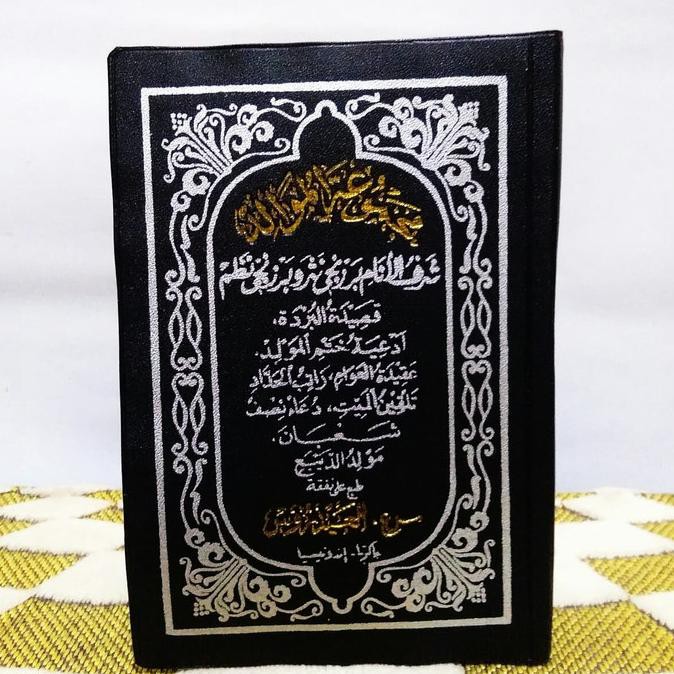 مجموعة الموالد
شرف الأنام برزنجي نثر وبرزنجي نظم
قصيدة البردة،
أدعية ختم المولد.
عقيدة العوام، راتب الحداد
تلقين الميت، دعاء نصف
شعبان.
مولد الديبع
طبع على نفقة
العيدروس
جاكرتا - إندونيسيا